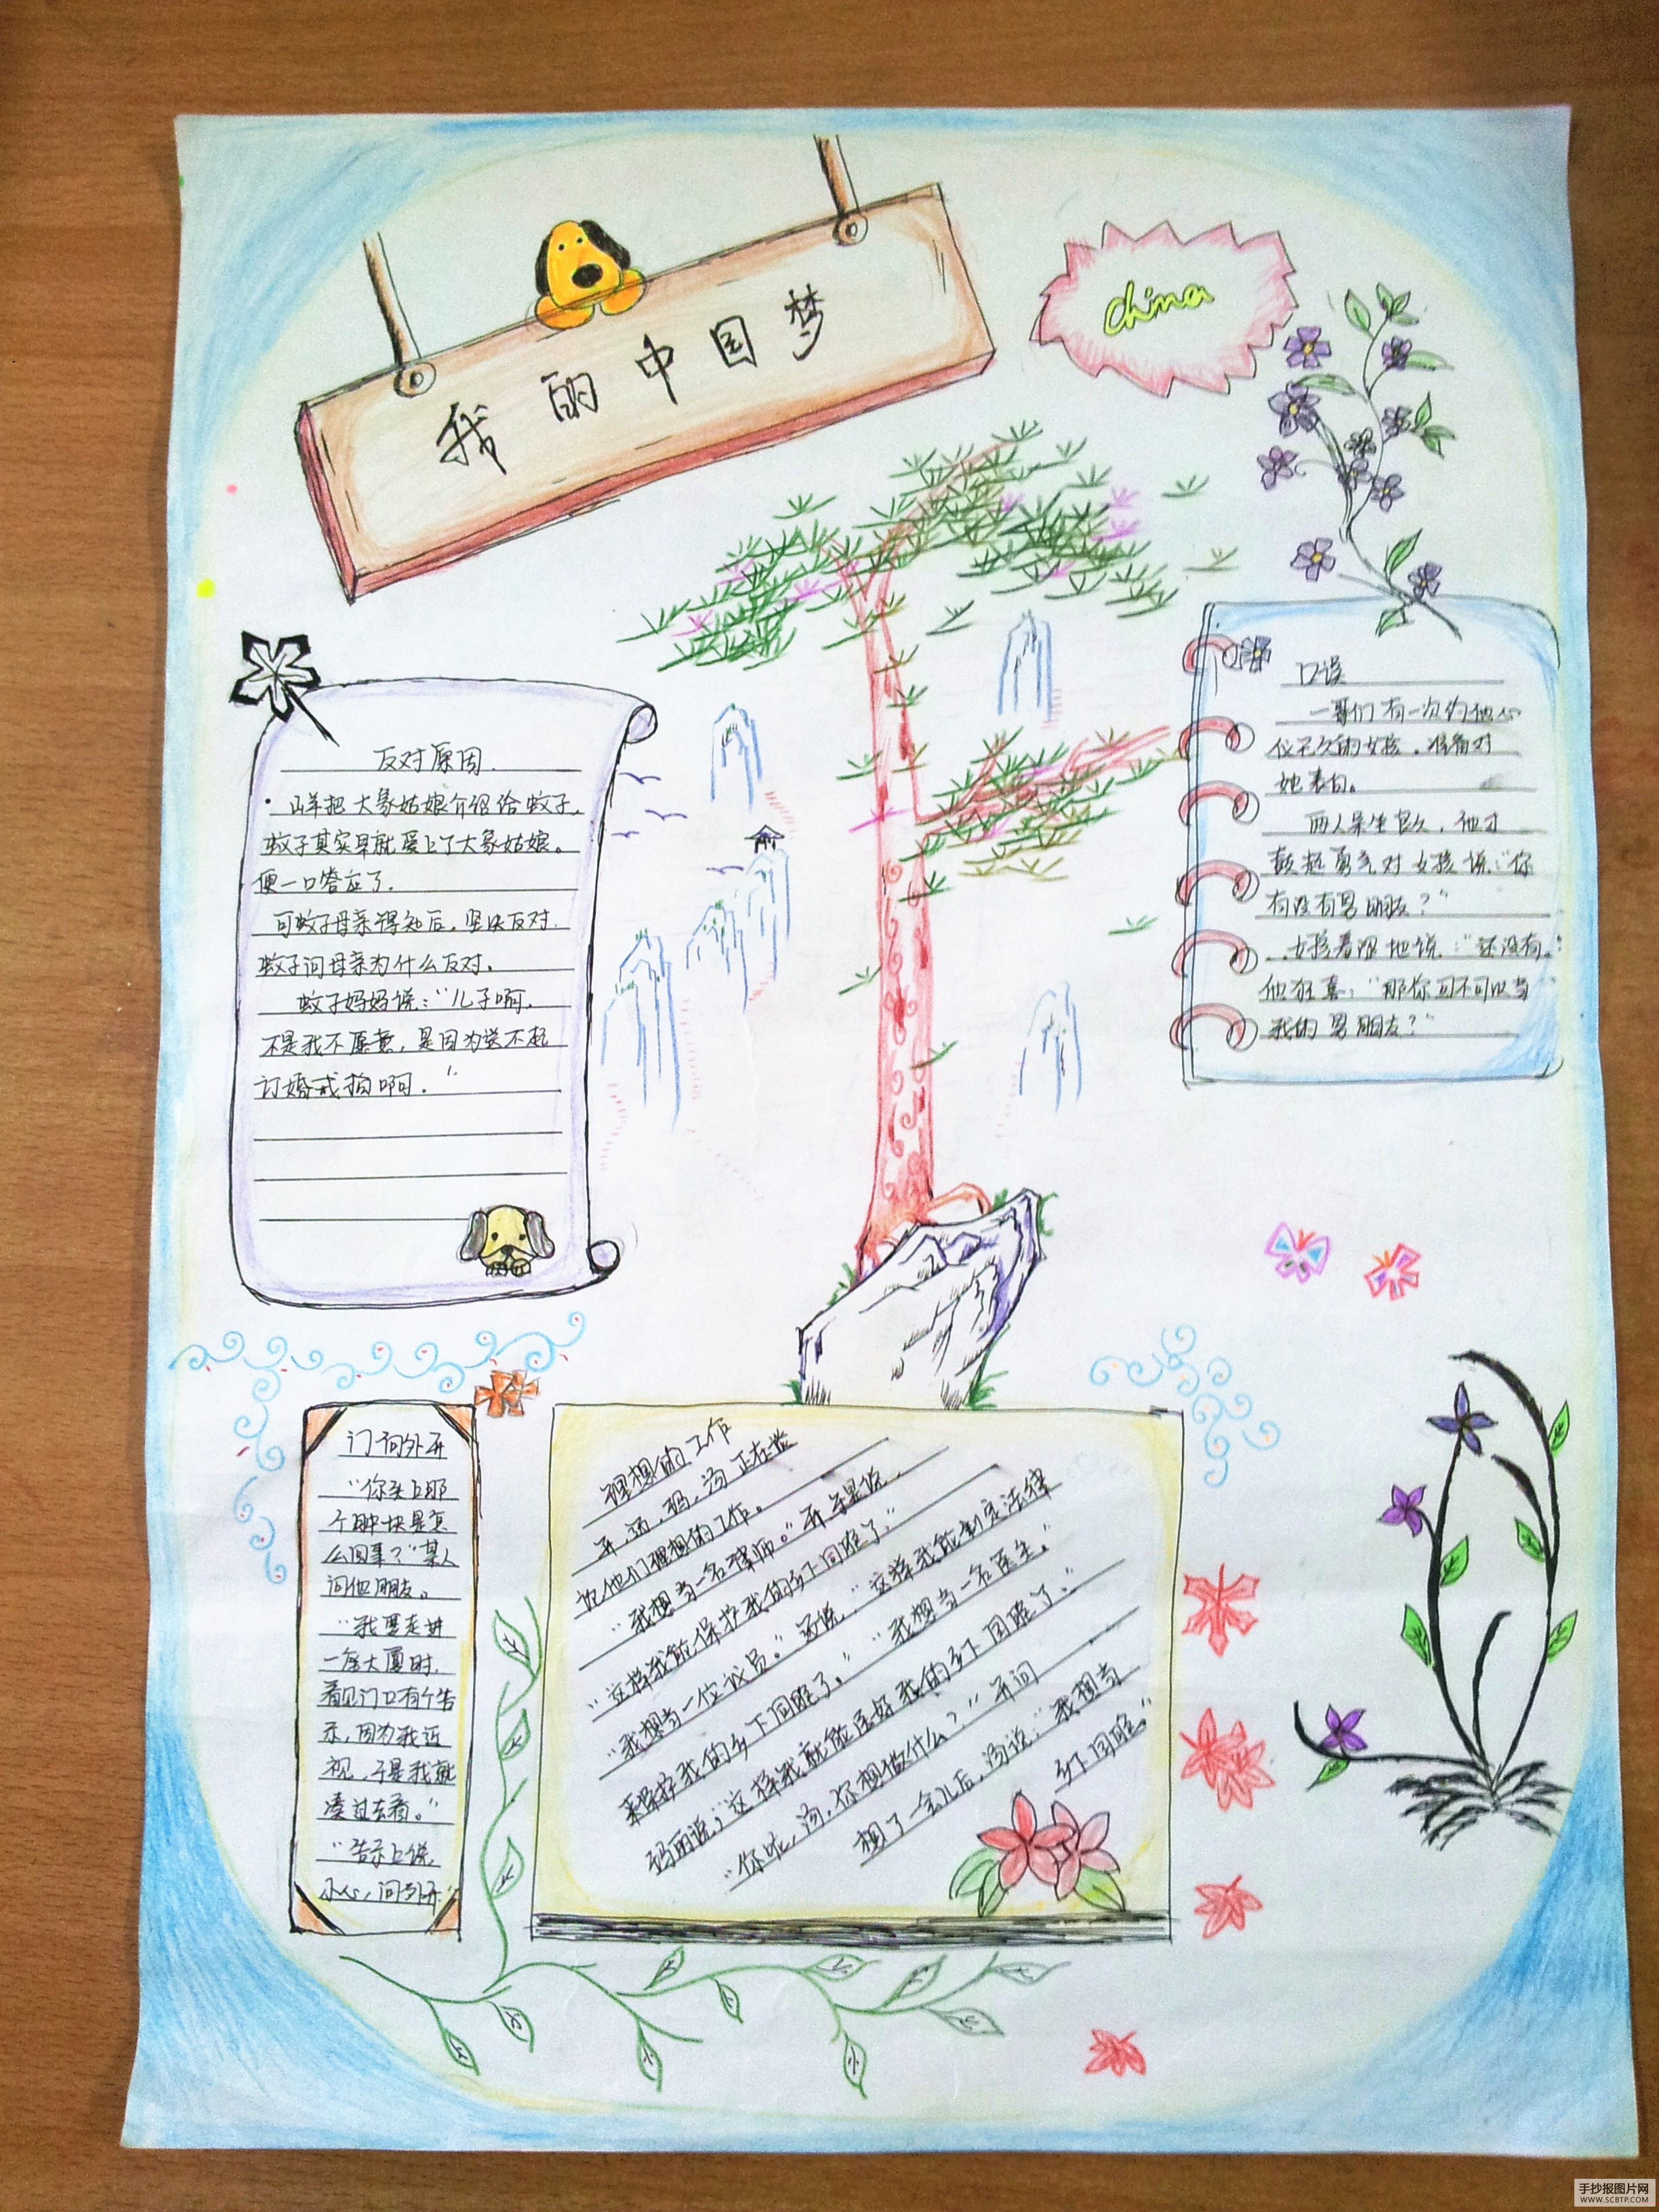 我的中国梦
China
反对原因
山羊把大象姑娘介绍给蚊子,
蚊子其实早就爱上了大象姑娘。
便一口答应了.
可蚊子母亲得知后,坚决反对.
蚊子问母亲为什么反对.
蚊子妈妈说:“儿子啊,
不是我不愿意,是因为送不起
订婚戒指啊.”
口误
一哥们有一次约他心
仪已久的女孩.准备对
她表白。
两人呆坐良久,他才
鼓起勇气对女孩说:“你
有没有男朋友?”
女孩羞涩地说:“还没有。”
他狂喜:“那你可不可以当
我的男朋友?”
门向外开
“你头上那
个肿块是怎
么回事?”某人
问他朋友。
“我要走进
一座大厦时,
看见门上有个告
示,因为我近
视,于是我就
凑过去看。”
“告示上说,
小心,门向外开”
理想的工作
开,汤,玛,汤正在谈
论他们理想的工作。
“我想当一名律师。”开尔是说,
“这样我能保护我的乡下同胞了”
“我想当一位议员。”汤说,“这样我能制定法律
来保护我的乡下同胞了。”“我想当一名医生。”
玛丽说;“这样我就能医好我的乡下同胞了.”
“你呢,汤,你想做什么?”开问
想了一会儿后,汤说:“我想当
乡下同胞”
手抄报图片网
WWW.SCBTP.COM